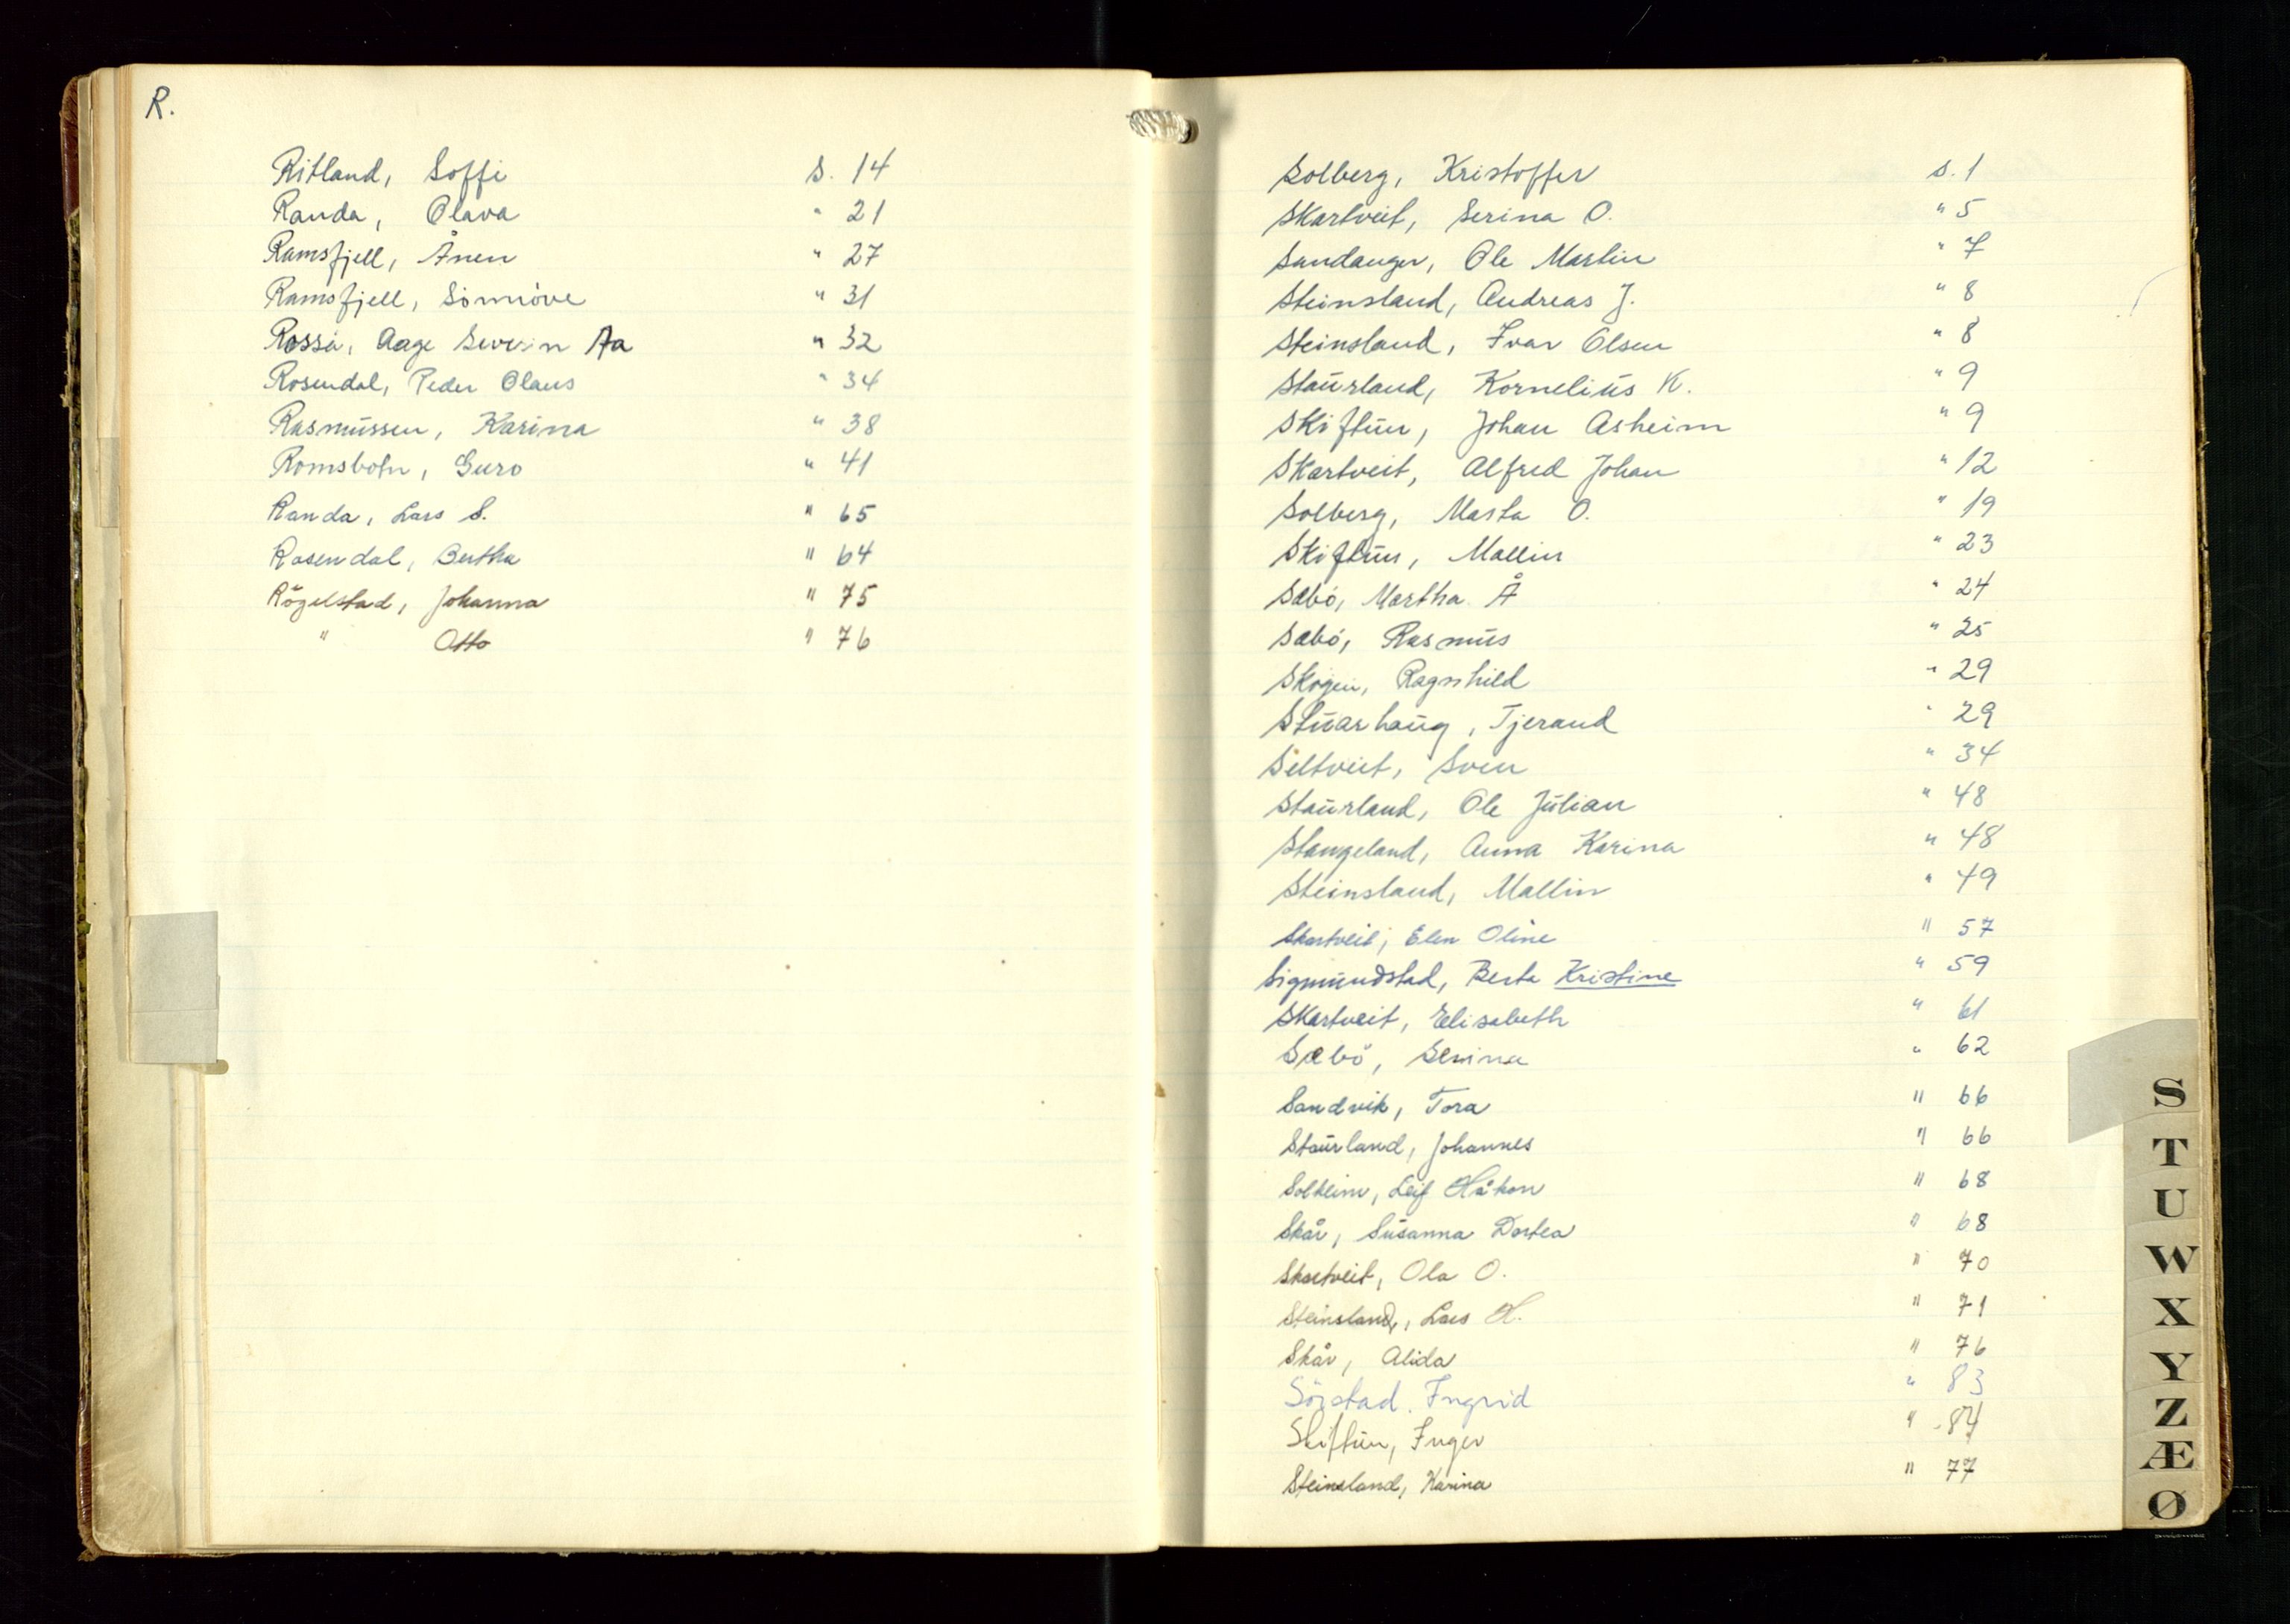 R.
Ritland, Soffi s. 14
Randa, Olava " 21
Ramsfjell, Ånen " 27
Ramsfjell, Sönnöve " 31
Rosså, Aage Severin Aa " 32
Rosendal, Peder Olaus " 34
Rasmussen, Karina " 38
Romsbotn, Guro " 41
Randa, Lars S. " 65
Rosendal, Bertha " 64
Rögelstad, Johanna " 75
" Otto " 76
Solberg, Kristoffer s. 1
Skartveit, Serina O. " 5
Sandanger, Ole Martin " 7
Steinsland, Andreas J. " 8
Steinsland, Ivar Olsen " 8
Staurland, Kornelius K. " 9
Skiftun, Johan Asheim " 9
Skartveit, Alfred Johan " 12
Solberg, Marta O. " 19
Skiftun, Mallin " 23
Sæbö, Martha Å " 24
Sæbö, Rasmus " 25
Skogen, Ragnhild " 29
Stuarhaug, Tjerand " 29
Seltveit, Sven " 34
Staurland, Ole Julian " 48
Stangeland, Anna Karina " 48
Steinsland, Mallin " 49
Skartveit, Elen Oline " 57
Sigmundstad, Berta Kristine " 59
Skartveit, Elisabeth " 61
Sæbö, Serina " 62
Sandvik, Tora " 66
Staurland, Johannes " 66
Solheim, Leif Håkon " 68
Skår, Susanna Dortea " 68
Skartveit, Ola O. " 70
Steinsland, Lars H. " 71
Skår, Alida " 76
Sörstad. Ingrid " 83
Skiftun, Inger " 84
Steinsland, Karina " 77
S
T
U
W
X
Y
Z
Æ
Ø